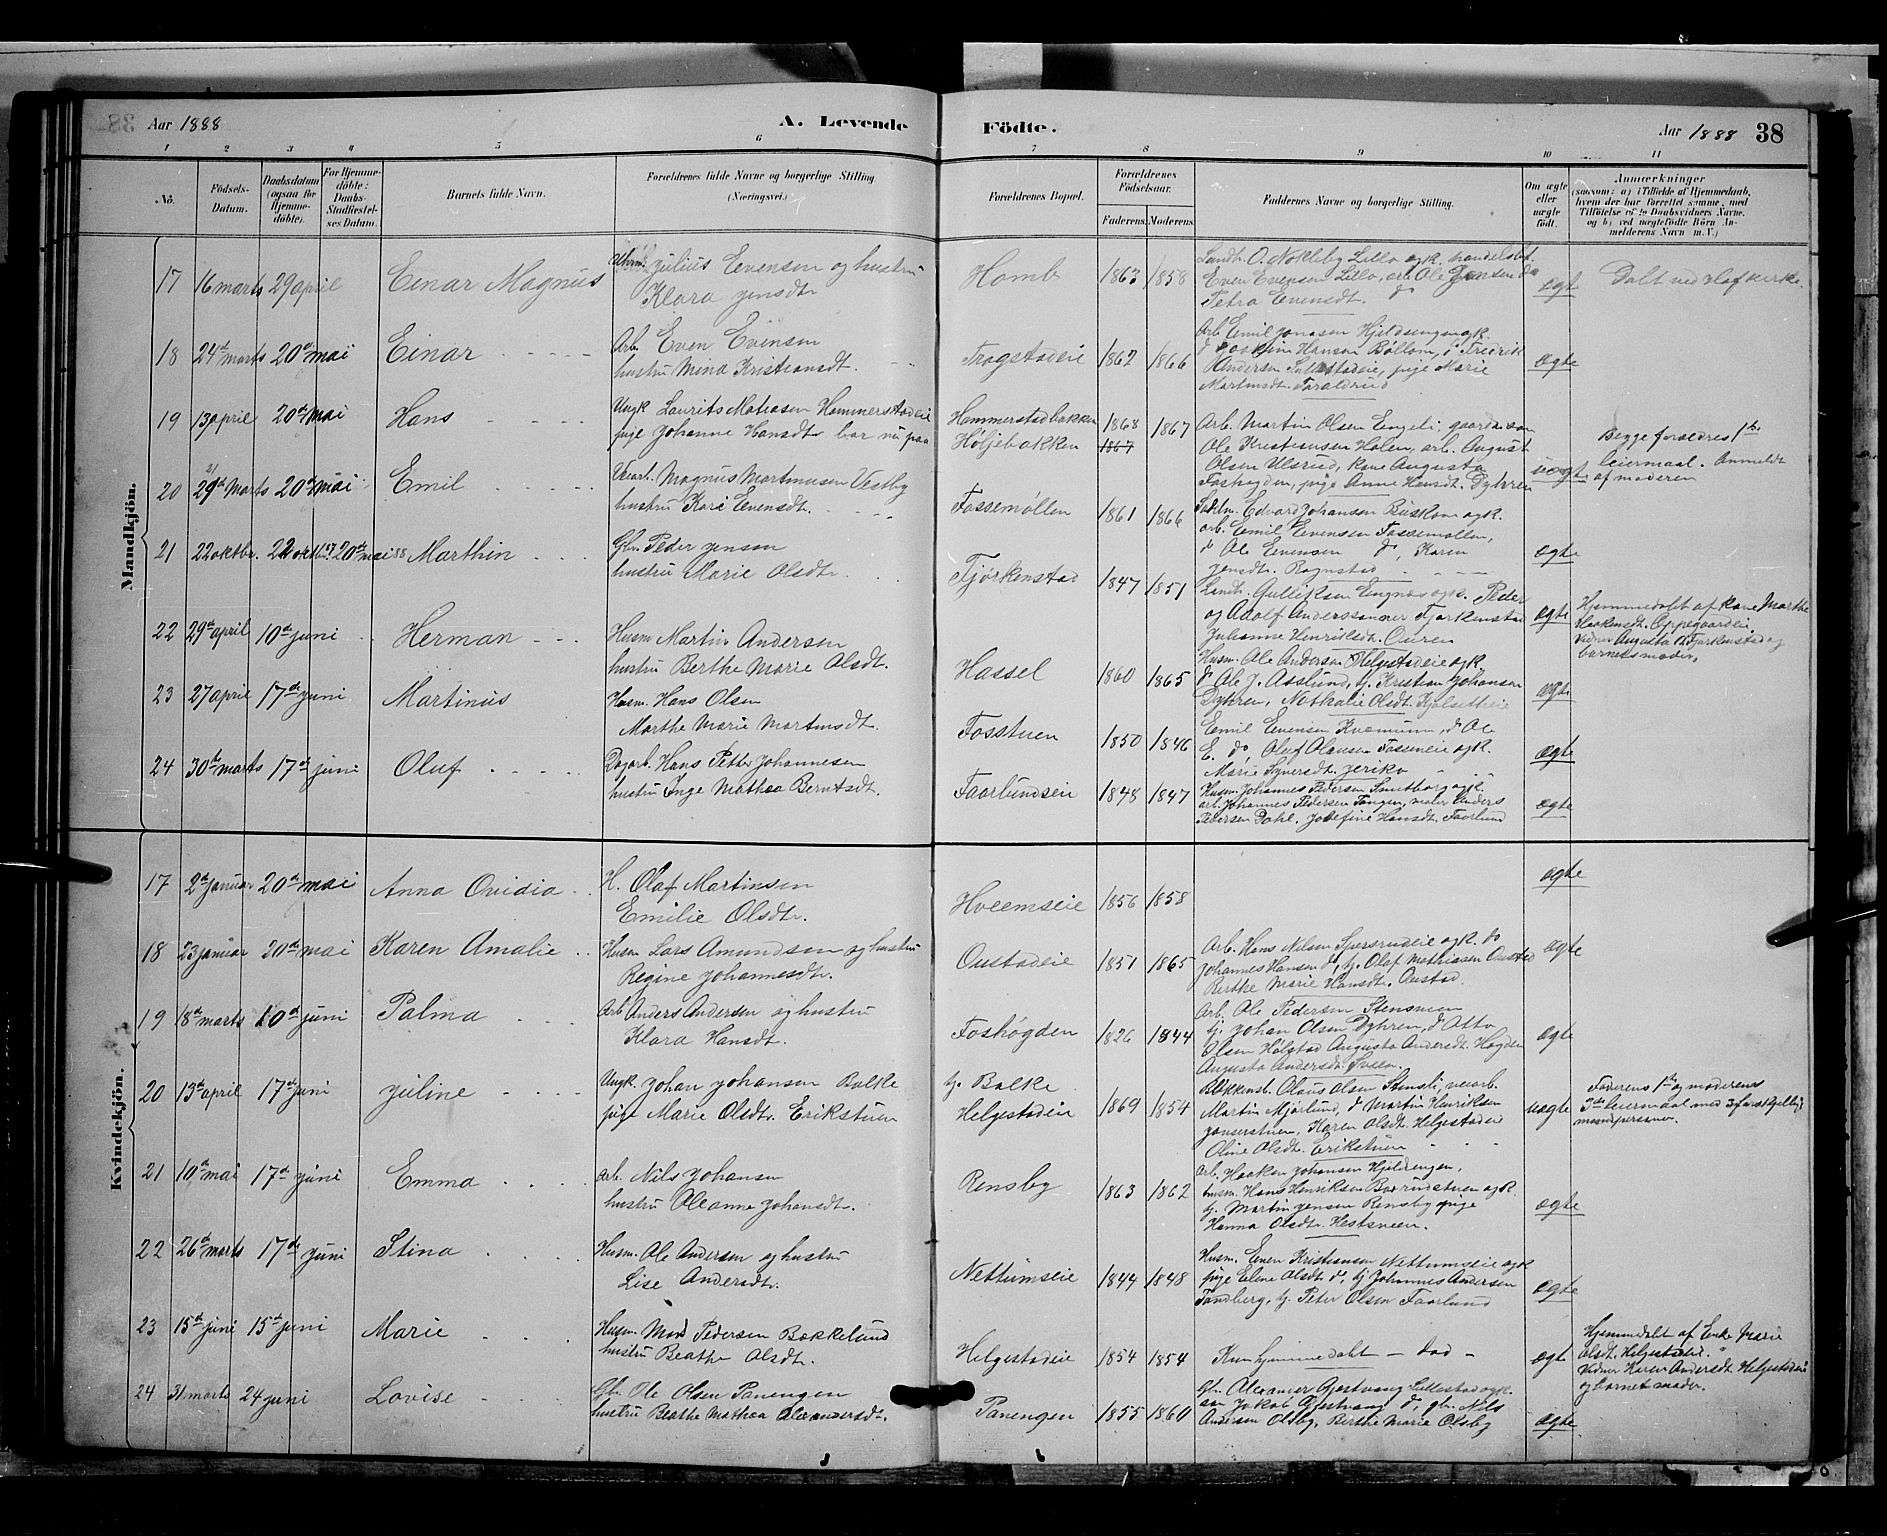 Aar 1888
A. Levende
Födte.
Aar 1888
38
1 2 3 4 5 6 7 8 9 10 11
No.
Födsels-
Datum.
Daabsdatum
(ogsaa for
Hjemme-
döbte).
For Hjemme-
döbte:
Daabs-
Stadfæstel-
ses Datum.
Barnets fulde Navn.
Forældrenes fulde Navne og borgerlige Stilling
(Næringsvei.)
Forældrenes Bopæl.
Forældrenes
Födselsaar.
Faderens. Moderens.
Faddernes Navne og borgerlige Stilling.
Om ægte
eller
uægte
födt.
Anmærkninger
(saasom: a) i Tilfælde af Hjemmedaab,
hvem der har forrettet samme, med
Tilföielse af to Daabsvidners Navne,
og b) ved uægtefödte Börn An-
melderens Navn m. V.)
Mandkjön.
17 16 marts 29 april Einar Magnus
Julius Evensen og hustru
Klara Jensdt.
Homb 1863 1858
Even Evensen Lillo, arb. Ole Jensen do
Petra Evensdt. do
ægte
Døbt ved Hof kirke.
18 24de marts 20de mai Einar
Arb. Even Evensen
hustru Mina Kristiansdt.
Tragstadeie 1862 1866
Arb. Emil Jonasen Hjeldsengen ogk.
do Joakim Hansen Bøllom, do Fredrik
Andersen, pige Marie
Martinsdt. Faraldrud
ægte
19 13 april 20de mai Hans
Ungk. Laurits Matiasen Hammerstadeie
pige Johanne Hansdt. bor nu paa
Hammerstadbakken
Høljebakken
1863 1867
1867
Arb. Martin Olsen Engeli, gaardm.søn
Ole Kristiansen Holen, arb. August
Olsen Ulsrud, kone Augusta
Foshøgden, pige Anne Hansdt. Dyhren
uægte
Begge foreldres 1ste
leiermaal. Anmeldt
af moderen
20 29de marts 20de mai Emil
Magnus Martinusen Vestby
hustru Kari Evensdt.
Fossemøllen 1861 1866
Edvard Johansen ogk.
arb. Emil Evensen Fossemøllen,
do Ole Evensen do, Karen
Jensdt. Rognstad
ægte
21 22 oktbr. 22 oktbr 87 20de mai 88 Marthin
Gbr. Peder Jensen
hustru Marie Olsdt.
Fjørkenstad 1847 1851
Landh. Gulliksen Engnæs ogk. Peder
og Adolf Anderssønner Fjørkenstad
Julianne Henriksdt. Ouren
ægte
Hjemmedøbt af kone Marthe
Haakensdt. Oppegaardeie
Vidner Augusta P. Fjørkenstad og
barnets moder.
22 29de april 10de juni Herman
Husm. Martin Andersen
hustru Berthe Marie Olsdt.
Hassel 1860 1865
Husm. Ole Andersen Helgestadeie ogk.
do Ole J. Asslund, tj. Kristian Johansen
Dyhren, Nathalie Olsdt. Kjelsetheie
ægte
23 27 april 17de juni Martinus
Husm. Hans Olsen
Marthe Marie Martinsdt.
Fosstuen 1850 1846
Emil Evensen Kvæmum, do Ole
E. do, Oluf Olausen Fosseneie ogk.
Marie Syversdt. Jeriko
ægte
24 30de marts 17de juni Oluf
Dagarb. Hans Petter Johannesen
hustru Inge Mathea Berntsdt.
Faarlundseie 1848 1847
Husm. Johannes Pedersen ogk.
arb. Johannes Pedersen Tangen, maler Anders
Pedersen Dahl, Josefine Hansdt. Faarlund
ægte
Kvindekjön.
17 2de januar 20de mai Anna Ovidia
H. Olaf Martinsen
Emilie Olsdt.
Hveemseie 1856 1858
ægte
18 23 januar 20de mai Karen Amalie
Husm. Lars Amundsen og hustru
Regine Johannesdt.
Oustadeie 1851 1865
Arb. Hans Nilsen Sversrudeie ogk. do
Johannes Hansen do, tj. Olaf Mathiasen Oustad
Berthe Marie Hansdt. Oustad.
ægte
19 18de marts 10de juni Palma
Arb. Anders Andersen og hustru
Klara Hansdt.
Foshøgden 1826 1844
Arb. Ole Pedersen Stensveen
tj. Johan Olsen Dyhren, do Otto
Olsen Hølstad Augusta Andersdt. Høgden
Augusta Andersdt. Sveen.
ægte
20 13de april 17de juni Juline
Ungk. Johan Johansen Balke
pige Marie Olsdt. Erikstuen
tj. Balke
Helgestadeie
1869 1854
Blikkensl. Olaus Olsen Stensli, verarb.
Martin Mjørlund, do Martin Henriksen
Jonserstuen, Karen Olsdt. Helgestadeie
Oline Olsdt. Erikstuen
uægte
Faderens 1ste og moderens
3die leiermaal med 3 forskjellige
mandspersoner.
21 10de mai 17de juni Emma
Arb. Nils Johansen
hustru Oleanne Johansdt.
Rensby 1863 1862
Arb. Haaken Johansen Hjeldsengen,
husm. Hans Henriksen ogk.
tj. Martin Jensen Rensby pige
Hanna Olsdt. Hestsveen.
ægte
22 26de marts 17de juni Stina
Husm. Ole Andersen og hustru
Lise Andersdt.
Nettumseie 1844 1848
Husm. Even Kristiansen Nettumseie ogk
pige Elene Olsdt. do tj. Johannes Andersen
Tandberg, tj. Peter Olsen Faarlund
ægte
23 15de juni 15de juni Marie
Husm. Mads Pedersen Bækkelund
hustru Beathe Olsdt.
Helgestadeie 1854 1854
Kun hjemmedøbt — død —
ægte
Hjemmedøbt af Enke Marie
Olsdt. Helgestadeie.
Vidner Karen Andersdt. Helgestadeie
og barnets moder.
24 31 marts 24 juni Lovise
Gbr. Ole Olsen Panengen
hustru Beathe Mathea Alexandersdt.
Panengen 1855 1860
Gbr. Alexander Gjestvang Lillestad ogk.
søn Jakob Gjestvang do, gbr. Nils
Andersen Olsby, Berthe Marie Olsby
ægte